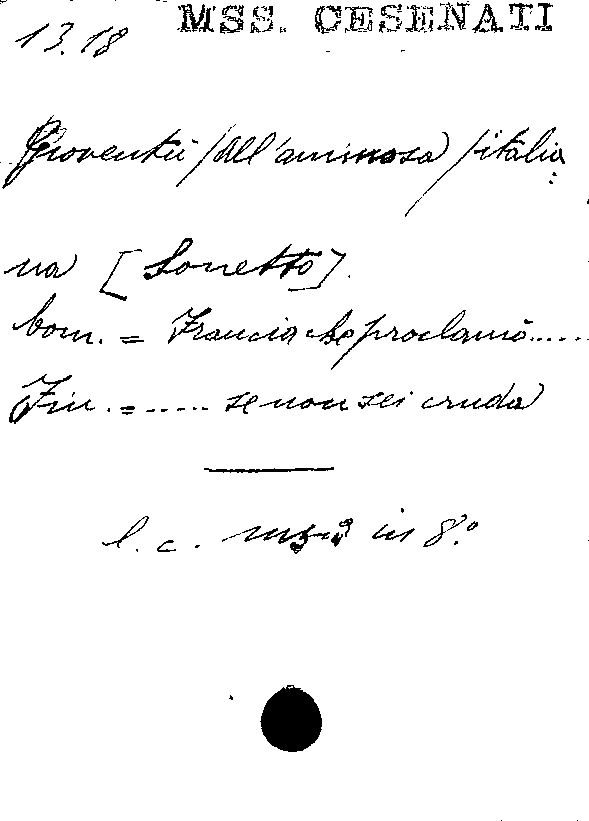 MSS. CESENATI
13.18
Gioventù (All'animosa) italia
na [Sonetto].
Com. = Francia che proclamò.....
Fin. = ..... se non sei cruda
l. c. ms. in 8.º